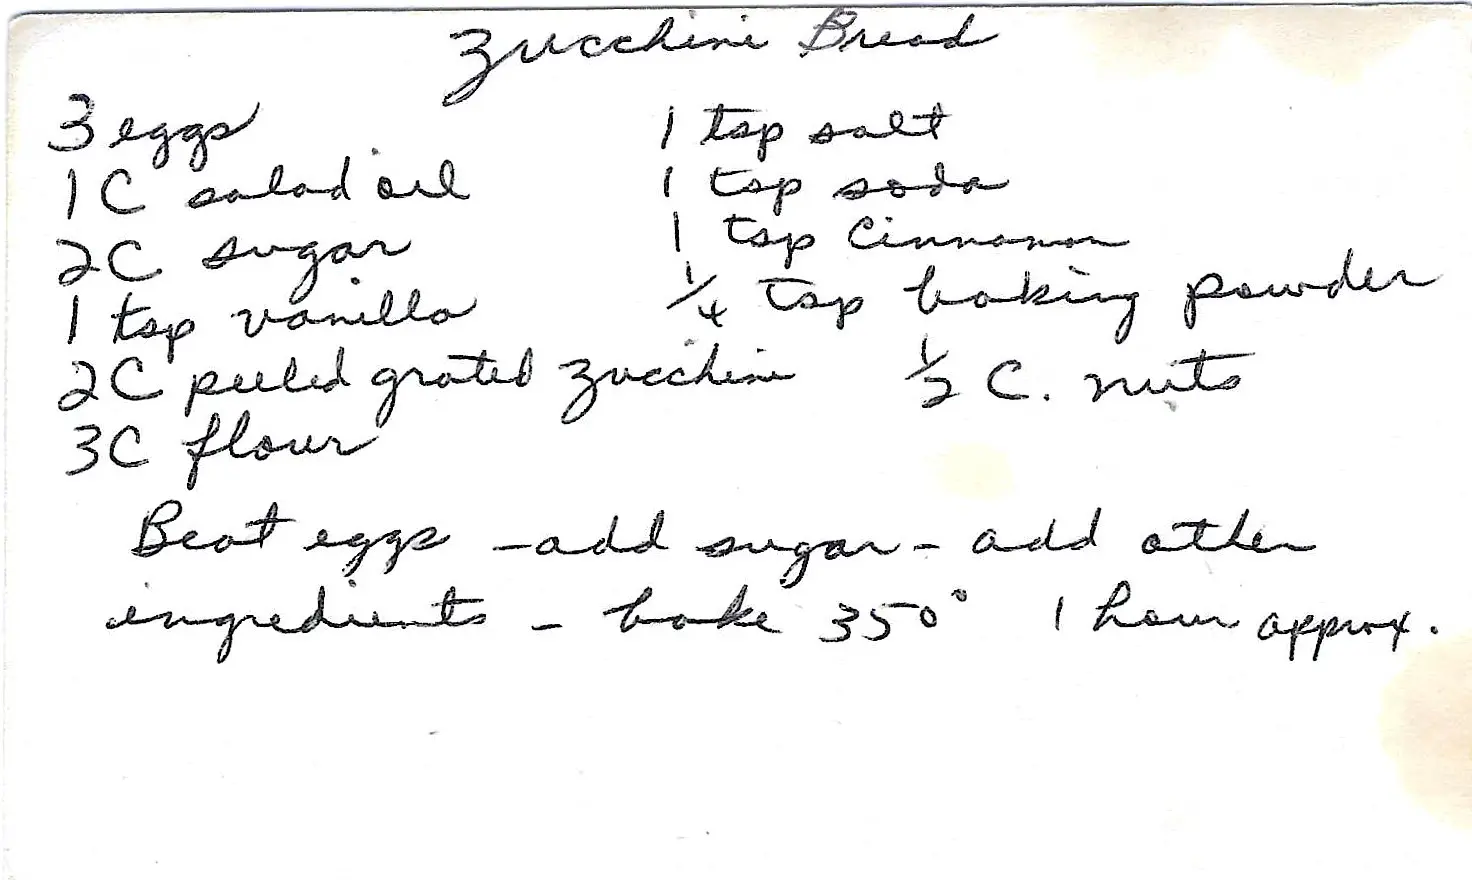 Zucchini Bread
3 eggs
1 C salad oil
2C sugar
1 tsp vanilla
2C peeled grated zucchini
3C flour
1 tsp salt
1 tsp soda
1 tsp cinnamon
1/4 tsp baking powder
1/2 C. nuts
Beat eggs - add sugar - add other
ingredients - bake 350° 1 hour approx.